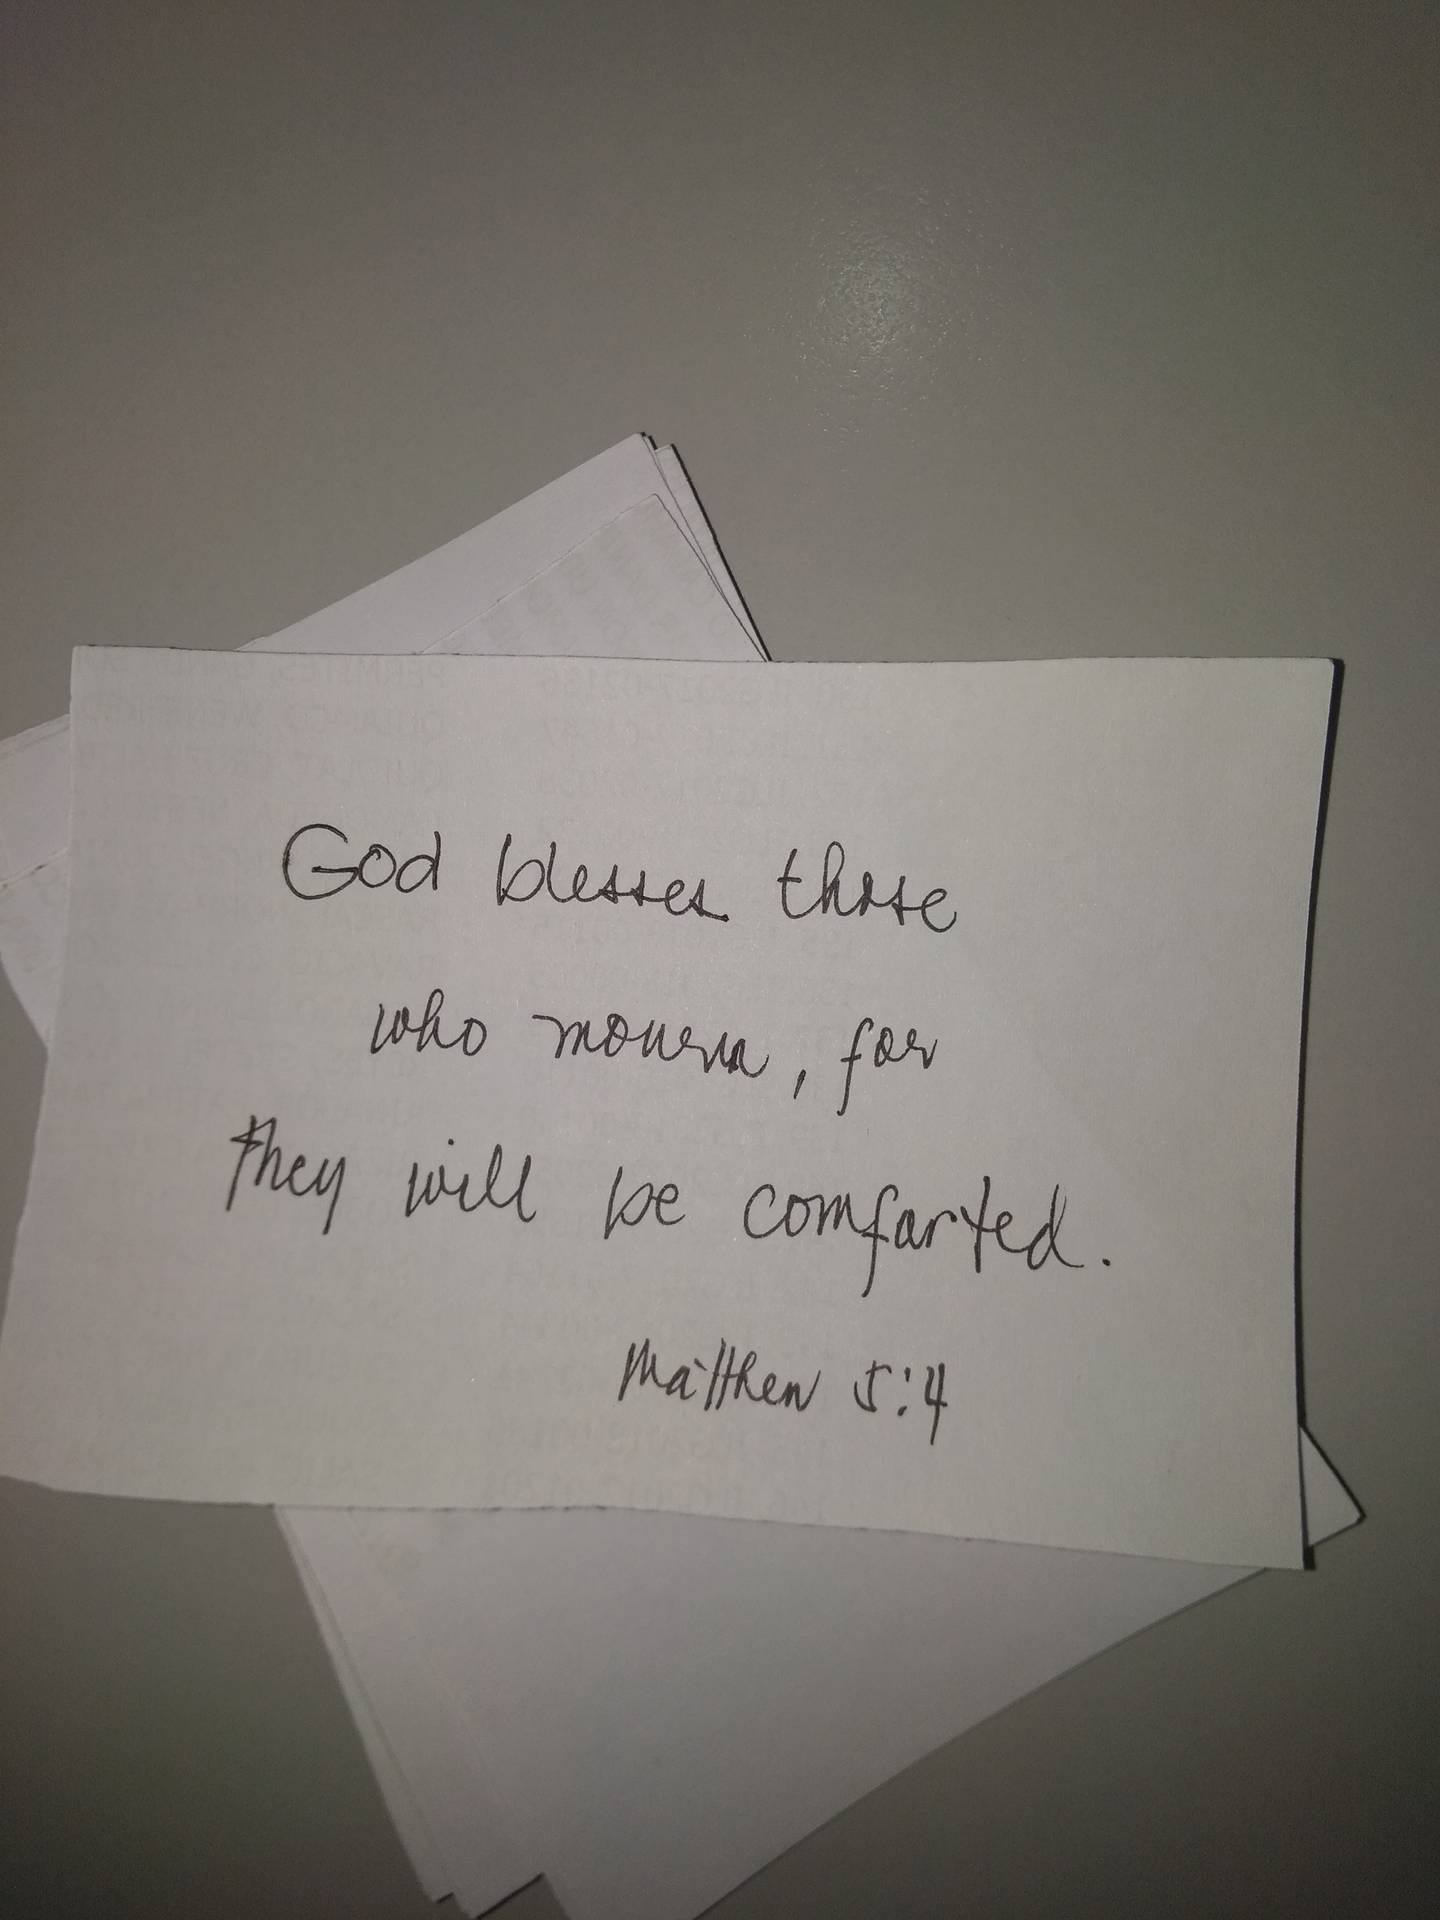 God blesses those
who mourn, for
they will be comforted.
Matthew 5:4